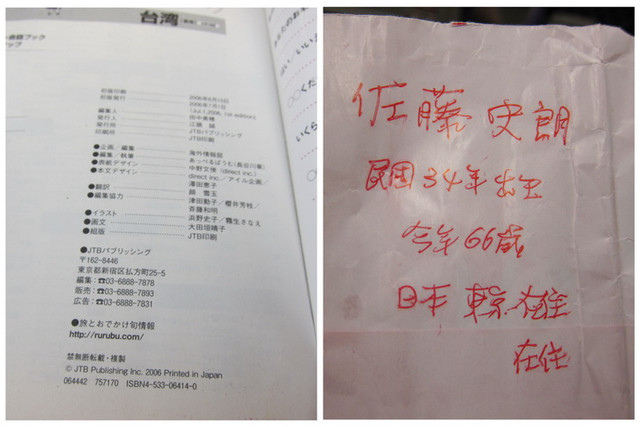 台湾
初版印刷 2006年6月15日
初版発行 2006年7月1日
(Jul.1,2006, 1st edition)
編集人 田中美穂
発行人 江頭 誠
発行所 JTBパブリッシング
印刷所 JTB印刷
●企画/編集 海外情報部
●編集・執筆 あっぺるばうむ(長谷川華)
●表紙デザイン 中野文俊 (direct inc.)
●本文デザイン direct inc./アイル企画/
澤田恵子
●翻訳 顔 雪玉
●編集協力 津田勤子/櫻井芳枝/
斉藤和明
●イラスト 浜野史子/霧生さなえ
●画文 大田垣晴子
●組版 JTB印刷
●JTBパブリッシング
〒162-8446
東京都新宿区払方町25-5
編集:☎03-6888-7878
販売:☎03-6888-7893
広告:☎03-6888-7831
●旅とおでかけ旬情報
http://rurubu.com/
禁無断転載・複製
© JTB Publishing Inc. 2006 Printed in Japan
064442 757170 ISBN4-533-06414-0
佐藤史朗
民國34年出生
今年66歲
日本 東京
在住